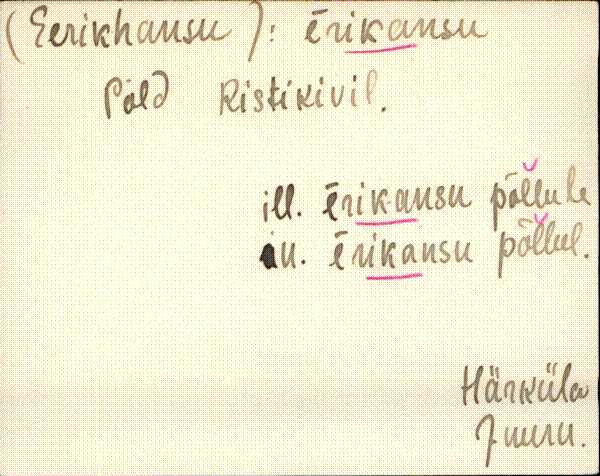 (Eerikhansu): ērikansu
Põld Ristikivil.
ill. ērikansu põllule
in. ērikansu põllul.
Härküla
Juuru.